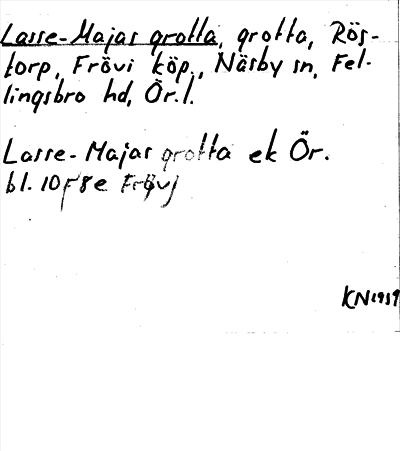 Lasse-Majas grotta, grotta, Rös-
torp, Frövi köp., Näsby sn, Fel-
lingsbro hd, Ör.l.
Lasse-Majas grotta ek Ör.
bl. 10F8e Frövi
KN1959